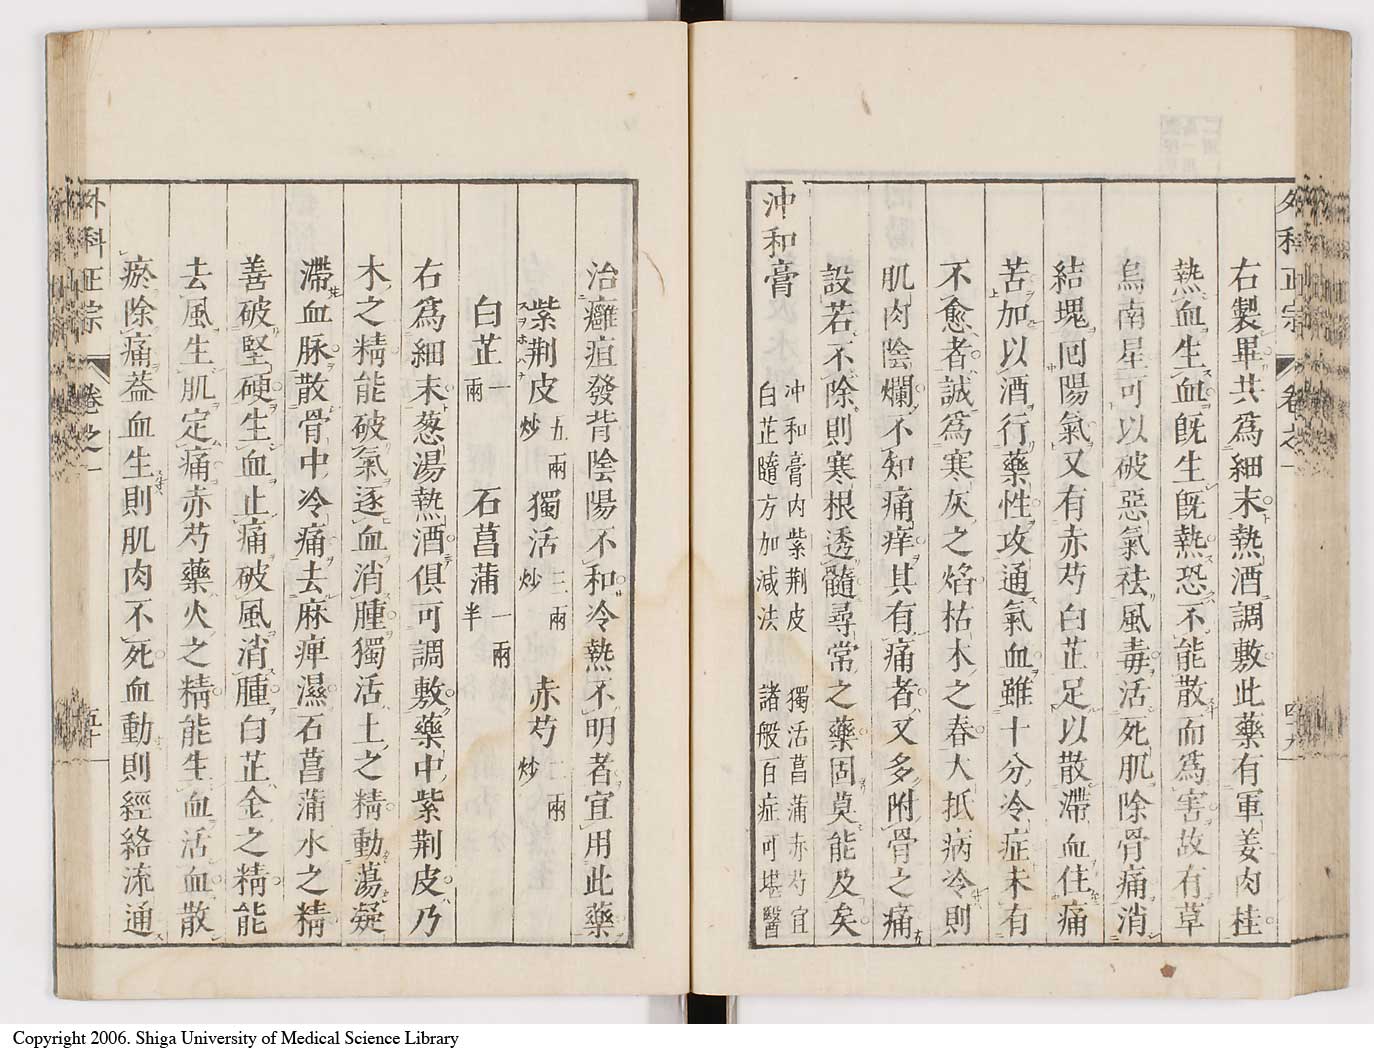 外科正宗 卷之一 四十九
右製畢共爲細末熱酒調敷此藥有軍姜肉桂
熱血生血旣生旣熱恐不能散而爲害故有草
烏南星可以破惡氣祛風毒活死肌除骨痛消
結塊回陽氣又有赤芍白芷足以散滯血住痛
苦加以酒行藥性攻通氣血雖十分冷症未有
不愈者誠爲寒灰之焰枯木之春大抵病冷則
肌肉陰爛不知痛痒其有痛者又多附骨之痛
設若不除則寒根透髓尋常之藥固莫能及矣
沖和膏
冲和膏内紫荆皮 獨活菖蒲赤芍宜
白芷隨方加減法 諸般百症可堪醫
治癰疽發背陰陽不和冷熱不明者宜用此藥
紫荆皮 五兩炒 獨活 三兩炒 赤芍 二兩炒
白芷 一兩 石菖蒲 一兩半
右爲細末葱湯熱酒俱可調敷藥中紫荆皮乃
木之精能破氣逐血消腫獨活土之精動蕩凝
滯血脉散骨中冷痛去麻痺濕石菖蒲水之精
善破堅硬生血止痛破風消腫白芷金之精能
去風生肌定痛赤芍藥火之精能生血活血散
瘀除痛葢血生則肌肉不死血動則經絡流通
外科正宗 卷之一 五十
Copyright 2006. Shiga University of Medical Science Library